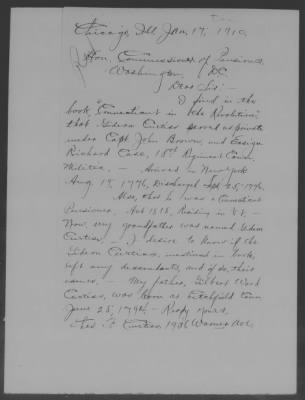 Chicago, Ill Jan. 17, 1910
Hon. Commissioner of Pensions
Washington, DC
Dear Sir:-
I find in the
book "Connecticut in the Revolution"
that Gideon Curtiss served as private
under Capt John Brown, and Ensign
Richard Case, 18th Regiment Conn.
Militia. - Arrived in New York
Aug. 19, 1776, Discharged Sept 25, 1776.
Also, that he was a Connecticut
Pensioner, Act 1818, Residing in Vt. -
Now, my grandfather was named Gideon
Curtiss - I desire to know if the
Gideon Curtiss, mentioned in book,
left any descendants, and if so, their
names. - My father, Gilbert
Curtiss, was born at Litchfield Conn
June 25, 1794 - Respy yours,
Curtiss 1936